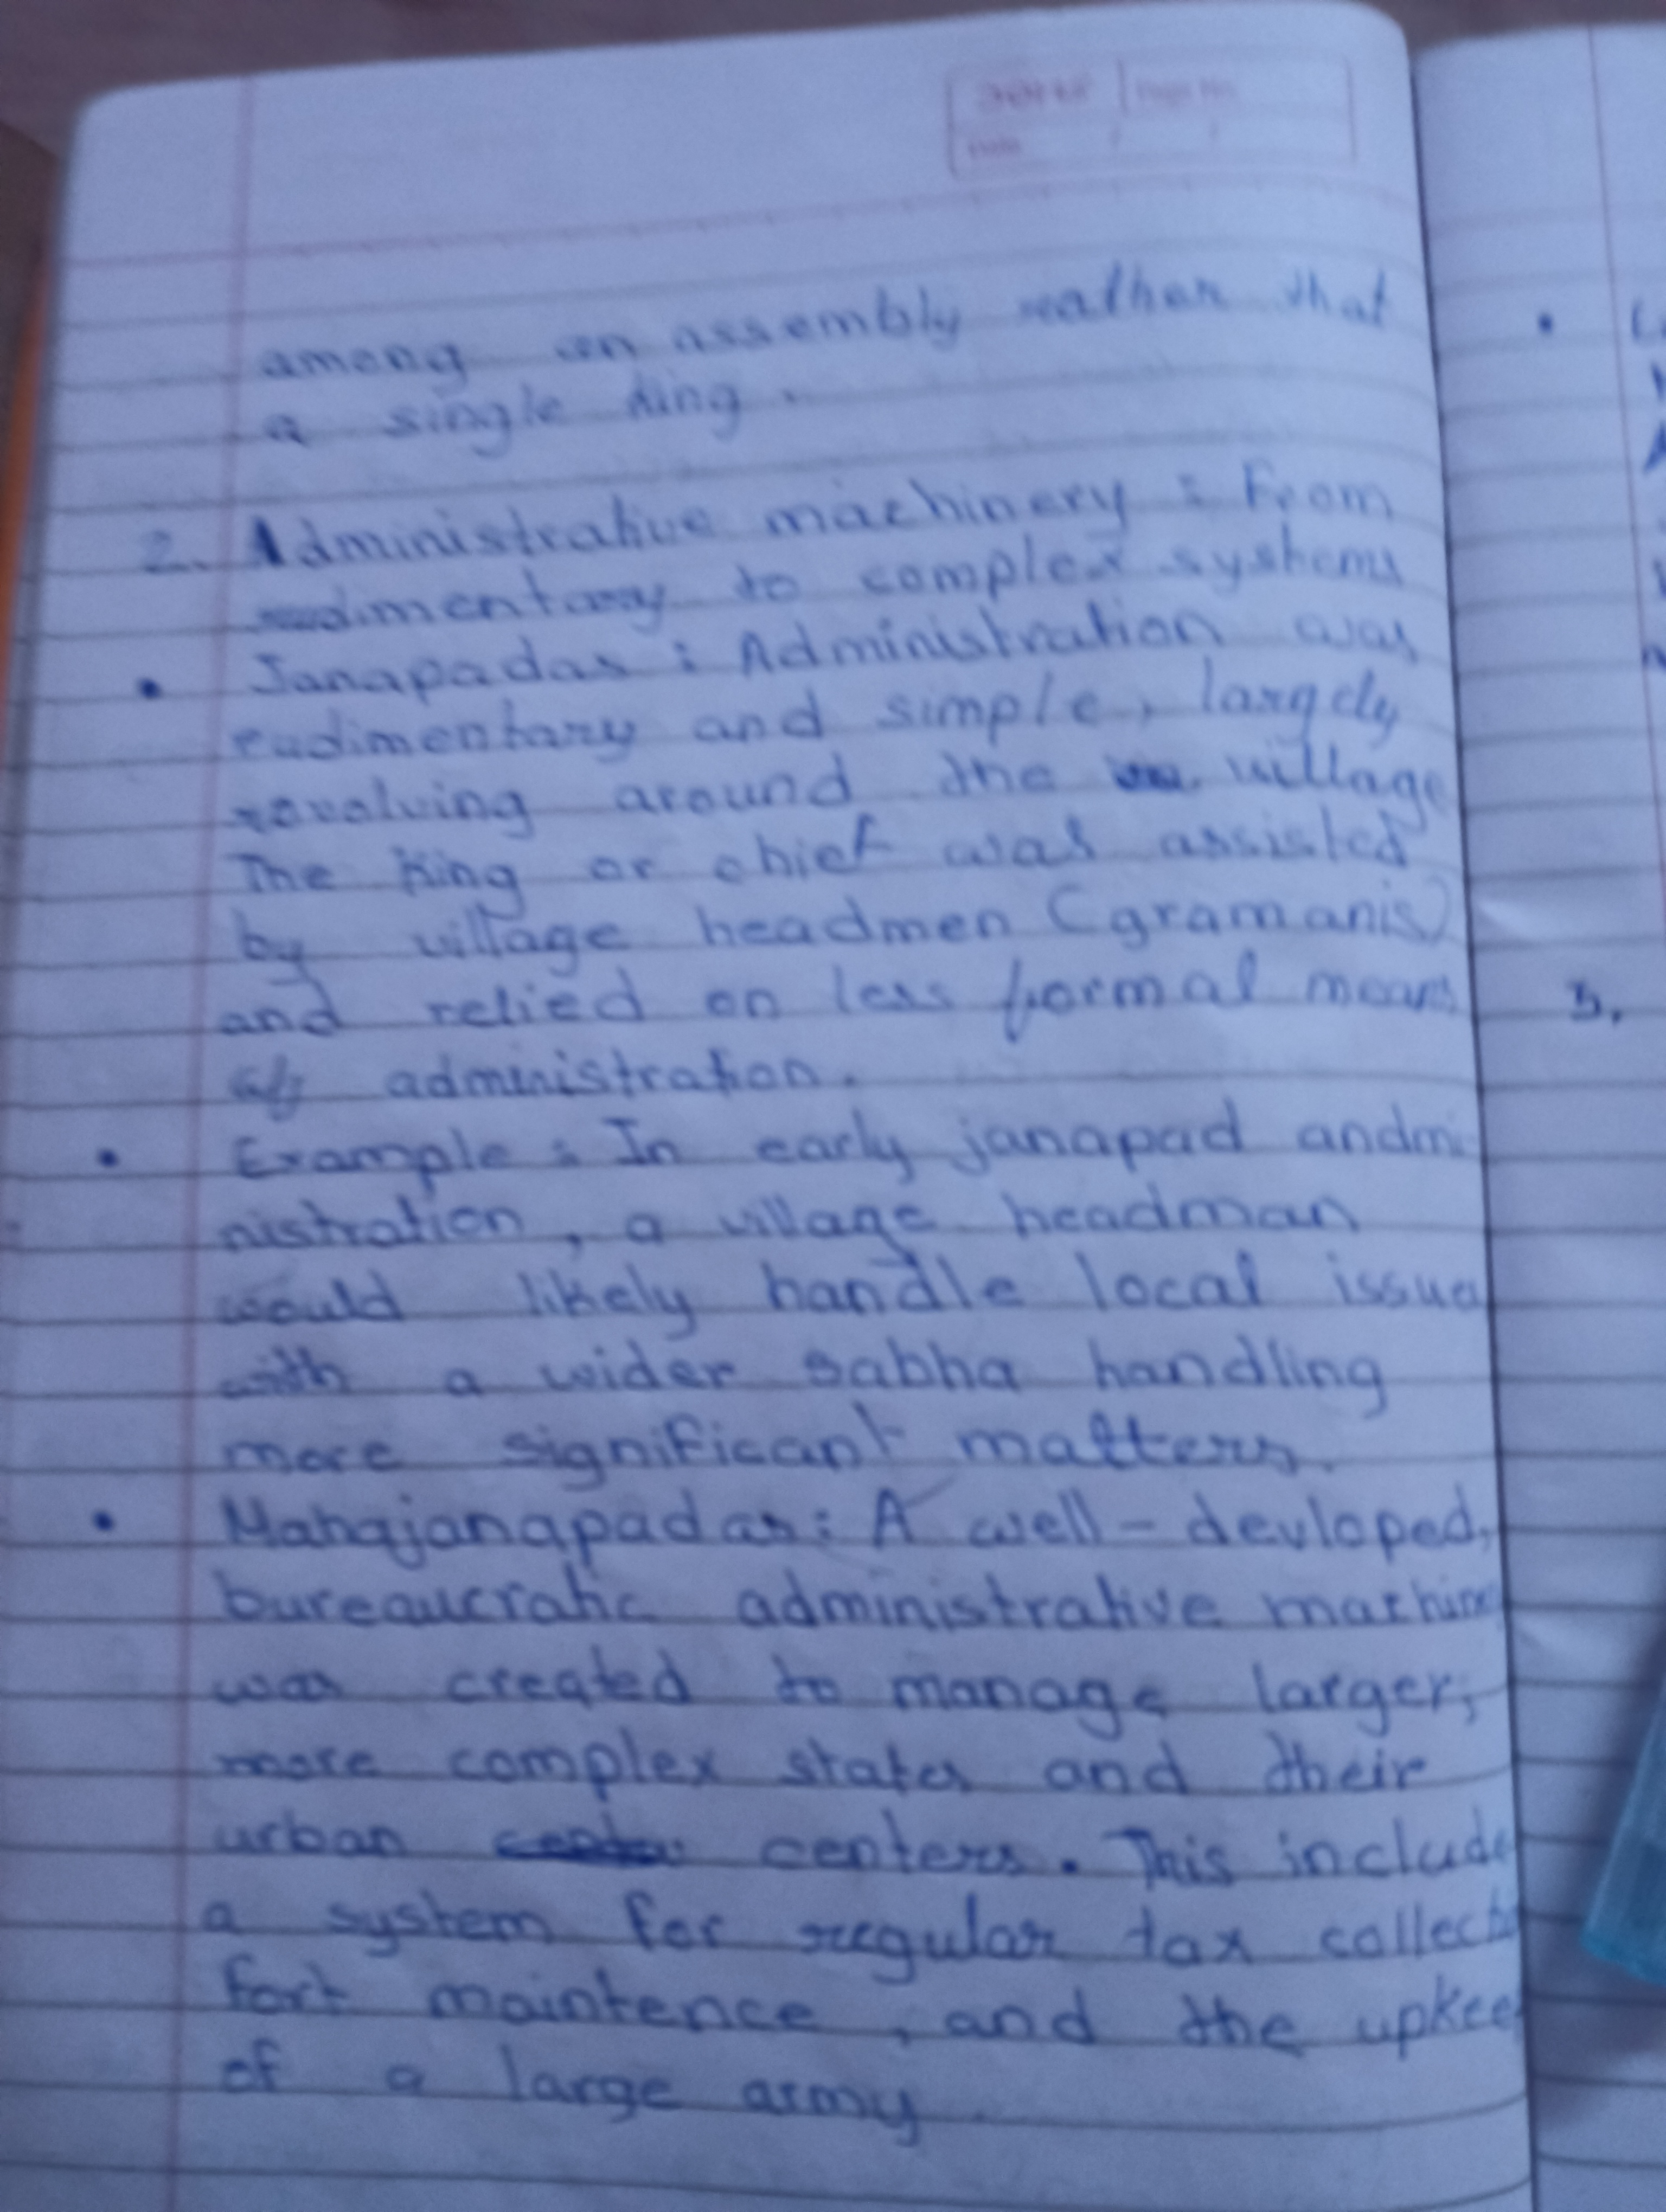 among an assembly rather that
a single king.
2. Administrative machinery : From
rudimentary to complex systems
• Janapadas : Administration was
rudimentary and simple, largely
revolving around the village
The king or chief was assisted
by village headmen (gramanis)
and relied on less formal means
of administration.
• Example : In early janapad andmi-
nistration, a village headman
would likely handle local issue
with a wider sabha handling
more significant matters.
• Mahajanapadas : A well-devloped,
bureaucratic administrative machine
was created to manage larger,
more complex states and their
urban centers. This include
a system for regular tax collect
fort maintence, and the upkee
of a large army.
3.